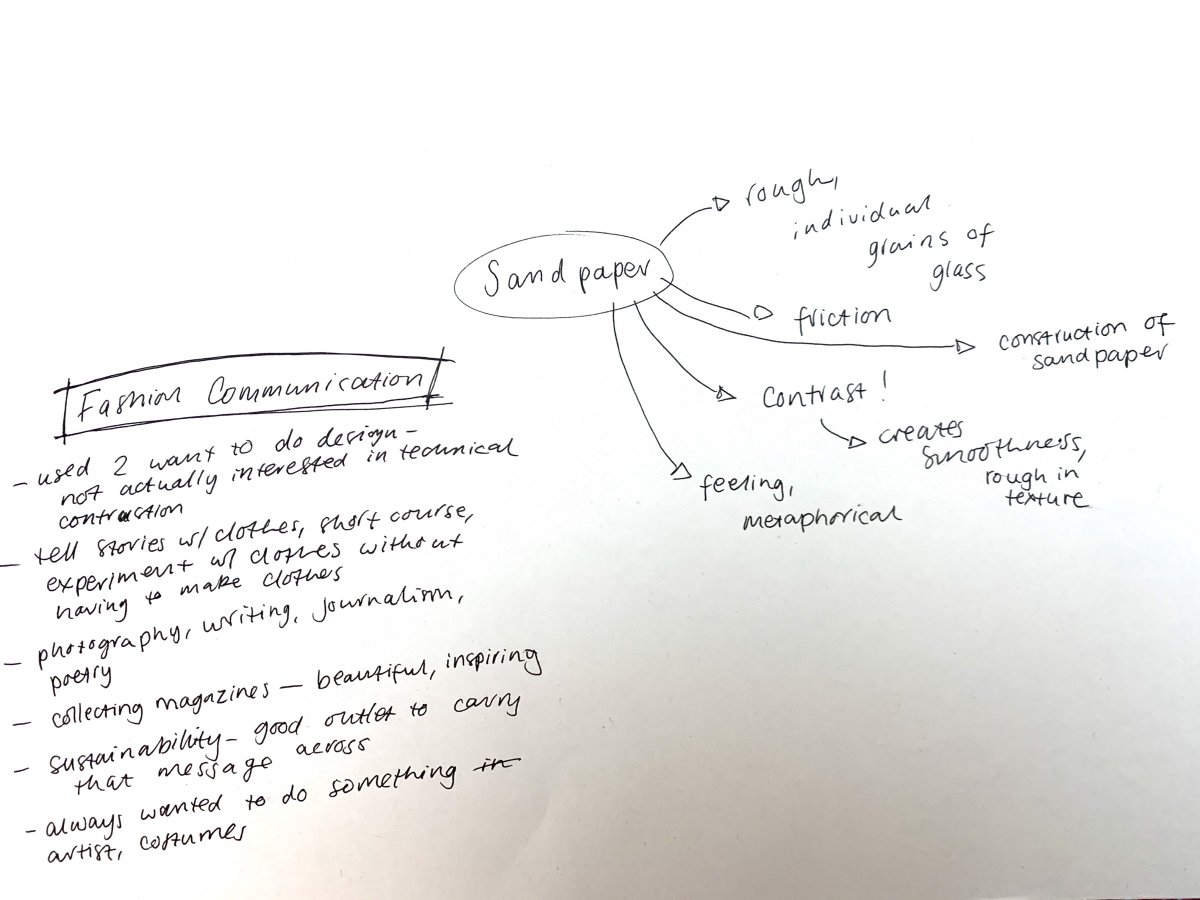 Sandpaper
rough,
individual
grains of
glass
friction
construction of
sandpaper
Contrast!
creates
smoothness,
rough in
texture
feeling,
metaphorical
Fashion Communication
- used 2 want to do design -
not actually interested in technical
contruction
- tell stories w/ clothes, short course,
experiment w/ clothes without
having to make clothes
- photography, writing, journalism,
poetry
- collecting magazines - beautiful, inspiring
- sustainability - good outlet to carry
that message across
- always wanted to do something in
artist, costumes